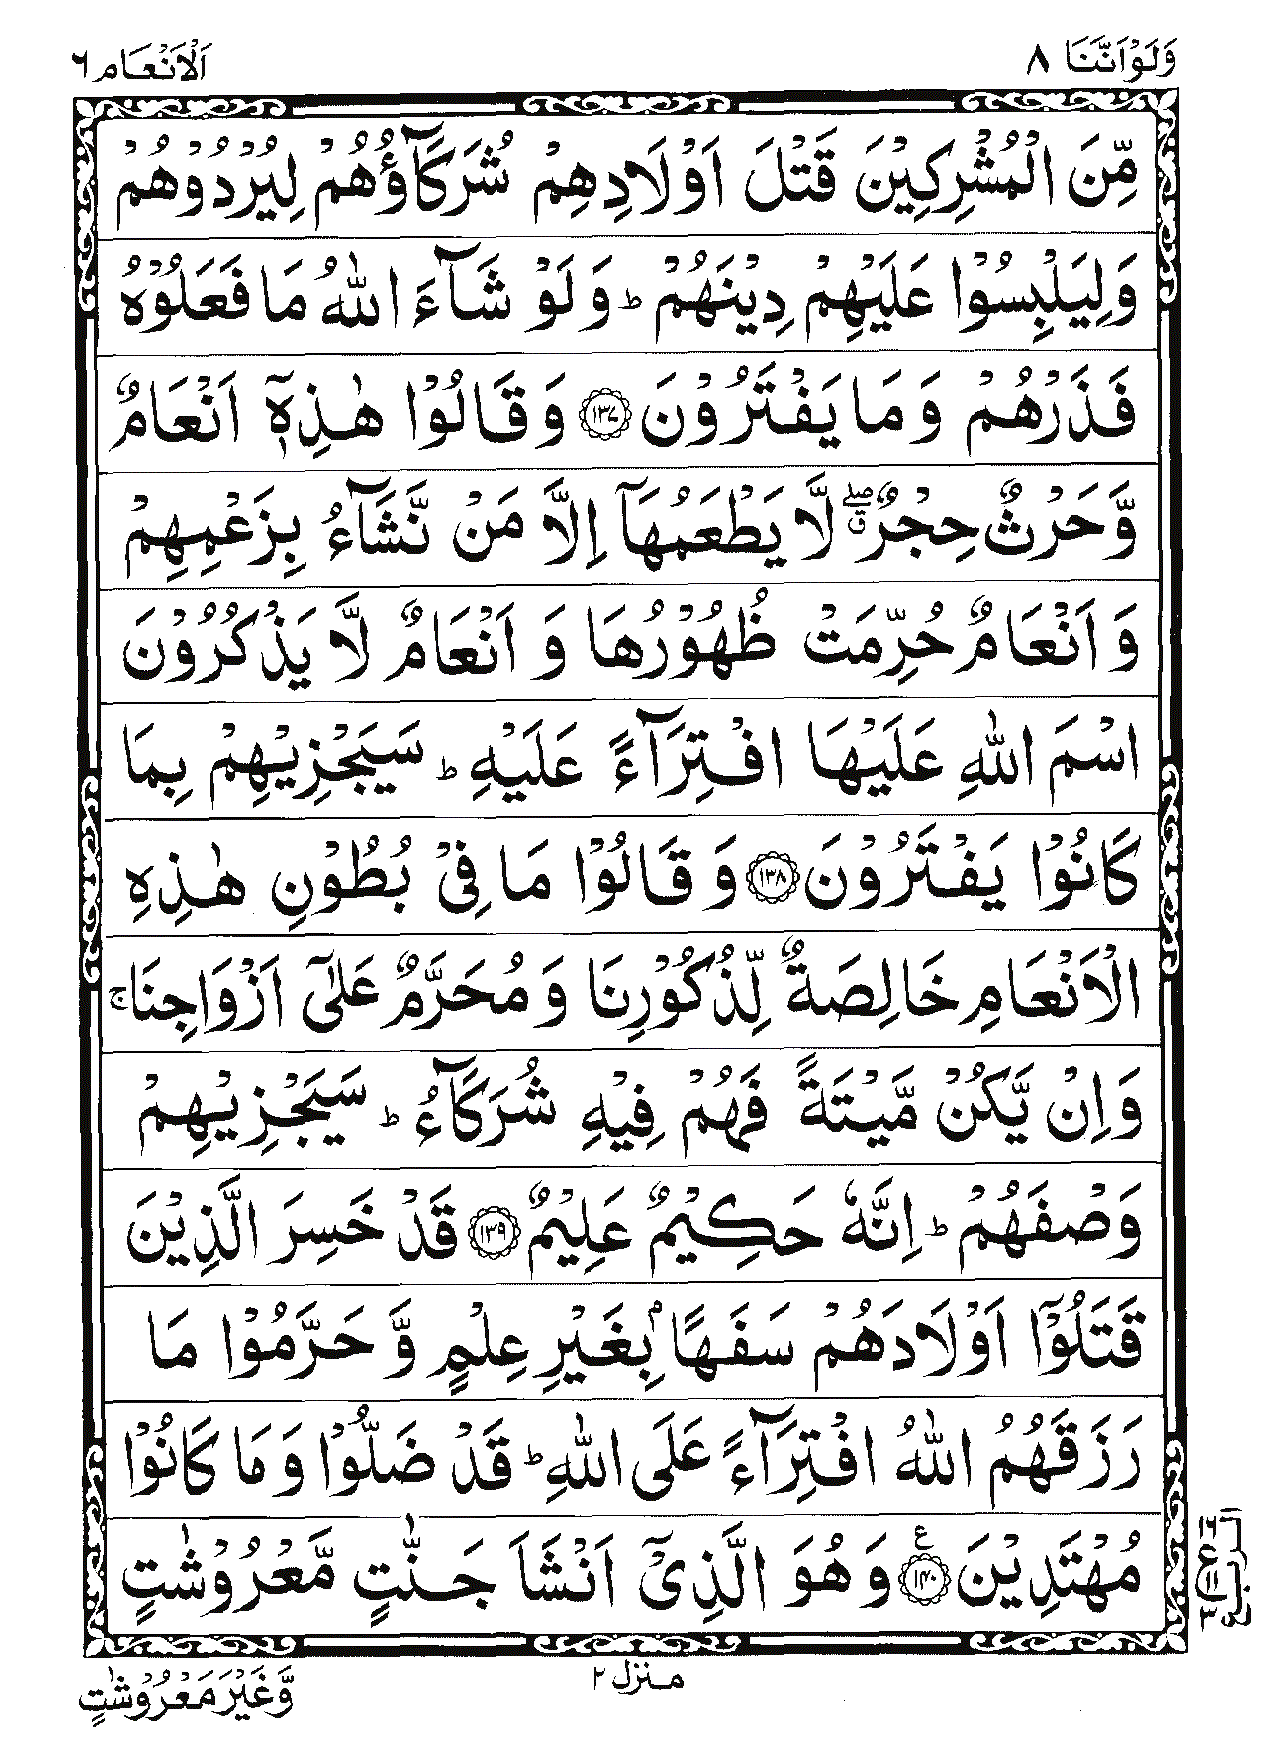 وَلَوْاَنَّنَا ٨
اَلْاَنْعَام ٦
مِّنَ الْمُشْرِكِيْنَ قَتْلَ اَوْلَادِهِمْ شُرَكَآؤُهُمْ لِيُرْدُوْهُمْ
وَلِيَلْبِسُوْا عَلَيْهِمْ دِيْنَهُمْ ؕ وَلَوْ شَآءَ اللّٰهُ مَا فَعَلُوْهُ
فَذَرْهُمْ وَمَا يَفْتَرُوْنَ ﴿١٣٧﴾ وَقَالُوْا هٰذِهٖۤ اَنْعَامٌ
وَّحَرْثٌ حِجْرٌ ۖق لَّا يَطْعَمُهَاۤ اِلَّا مَنْ نَّشَآءُ بِزَعْمِهِمْ
وَاَنْعَامٌ حُرِّمَتْ ظُهُوْرُهَا وَاَنْعَامٌ لَّا يَذْكُرُوْنَ
اسْمَ اللّٰهِ عَلَيْهَا افْتِرَآءً عَلَيْهِ ؕ سَيَجْزِيْهِمْ بِمَا
كَانُوْا يَفْتَرُوْنَ ﴿١٣٨﴾ وَقَالُوْا مَا فِىْ بُطُوْنِ هٰذِهِ
الْاَنْعَامِ خَالِصَةٌ لِّذُكُوْرِنَا وَمُحَرَّمٌ عَلٰٓى اَزْوَاجِنَا ۚ
وَاِنْ يَّكُنْ مَّيْتَةً فَهُمْ فِيْهِ شُرَكَآءُ ؕ سَيَجْزِيْهِمْ
وَصْفَهُمْ ؕ اِنَّهٗ حَكِيْمٌ عَلِيْمٌ ﴿١٣٩﴾ قَدْ خَسِرَ الَّذِيْنَ
قَتَلُوْۤا اَوْلَادَهُمْ سَفَهًۢا بِغَيْرِ عِلْمٍ وَّحَرَّمُوْا مَا
رَزَقَهُمُ اللّٰهُ افْتِرَآءً عَلَى اللّٰهِ ؕ قَدْ ضَلُّوْا وَمَا كَانُوْا
مُهْتَدِيْنَ ﴿١٤٠﴾ ع وَهُوَ الَّذِىْۤ اَنْشَاَ جَنّٰتٍ مَّعْرُوْشٰتٍ
الربع
١٦
ع ١١
٣
منزل ٢
وَّغَيْرَ مَعْرُوْشٰتٍ